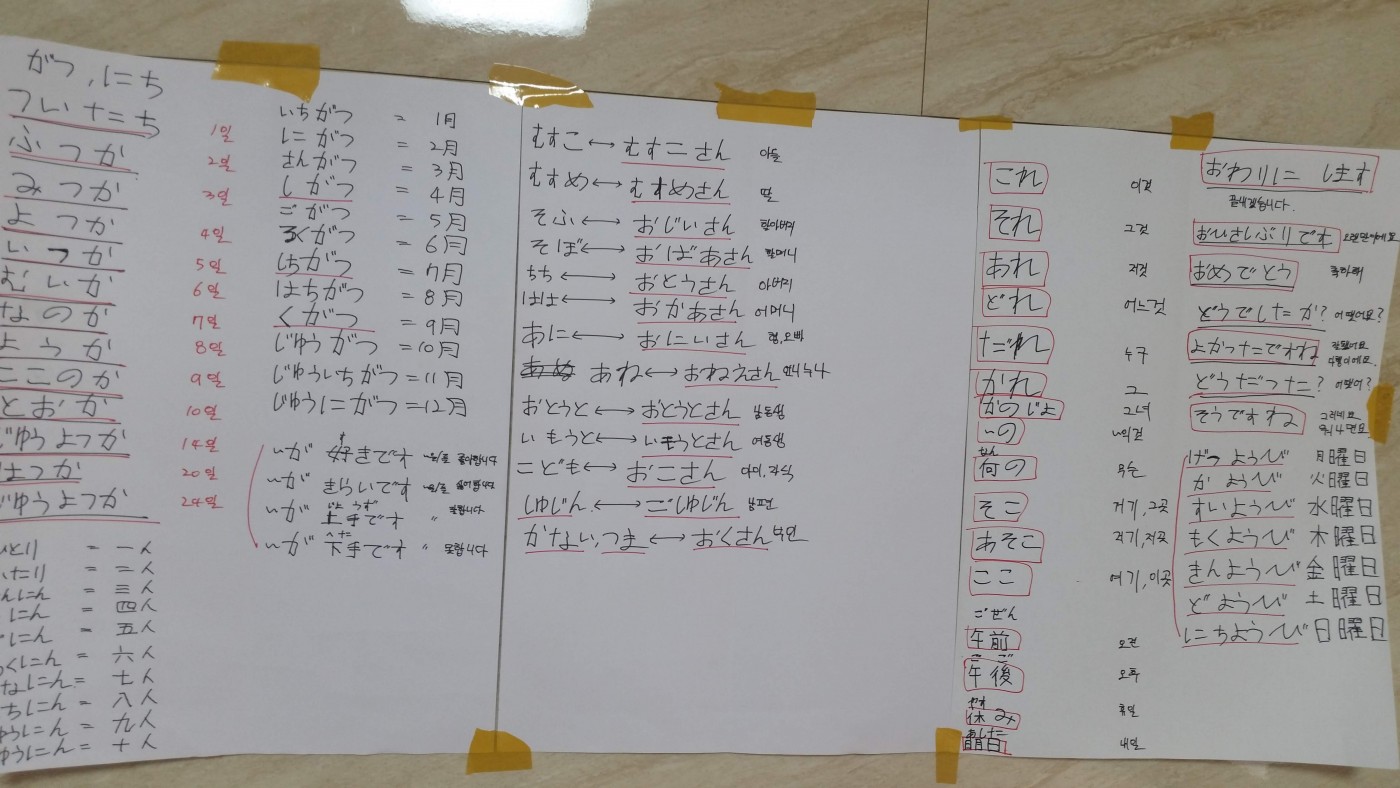 がつ, にち
ついたち
ふつか
みつか
よつか
いつか
むいか
なのか
ようか
ここのか
とおか
じゅうよつか
はつか
じゅうよつか
1일
2일
3일
4일
5일
6일
7일
8일
9일
10일
14일
20일
24일
ひとり = 一人
ふたり = 二人
さんにん = 三人
にん = 四人
にん = 五人
ろくにん = 六人
ななにん = 七人
はちにん = 八人
きゅうにん = 九人
じゅうにん = 十人
いちがつ = 1月
にがつ = 2月
さんがつ = 3月
しがつ = 4月
ごがつ = 5月
ろくがつ = 6月
しちがつ = 7月
はちがつ = 8月
くがつ = 9月
じゅうがつ = 10月
じゅういちがつ = 11月
じゅうにがつ = 12月
~が 好きです ~을/를 좋아합니다
~が きらいです ~을/를 싫어합니다
じょうず
~が 上手です " 잘합니다
へた
~が 下手です " 못합니다
むすこ ↔ むすこさん 아들
むすめ ↔ むすめさん 딸
そふ ↔ おじいさん 할아버지
そぼ ↔ おばあさん 할머니
ちち ↔ おとうさん 아버지
はは ↔ おかあさん 어머니
あに ↔ おにいさん 형, 오빠
あね ↔ おねえさん 언니 누나
おとうと ↔ おとうとさん 남동생
いもうと ↔ いもうとさん 여동생
こども ↔ おこさん 아이, 자식
しゅじん ↔ ごしゅじん 남편
かない, つま ↔ おくさん 부인
これ 이것
それ 그것
あれ 저것
どれ 어느것
だれ 누구
かれ 그
かのじょ 그녀
~の ~의것
なん
何の 무슨
そこ 거기, 그곳
あそこ 저기, 저곳
ここ 여기, 이곳
ごぜん
午前 오전
ごご
午後 오후
やす
休み 휴일
あした
明日 내일
おわりに します
끝내겠습니다.
おひさしぶりです 오랜만이에요
おめでとう 축하해
どうでしたか? 어땠어요?
よかったですね 잘됐네요 다행이에요.
どうだった? 어땠어?
そうですね 그러네요
げつようび 月曜日
かようび 火曜日
すいようび 水曜日
もくようび 木曜日
きんようび 金曜日
どようび 土曜日
にちようび 日曜日